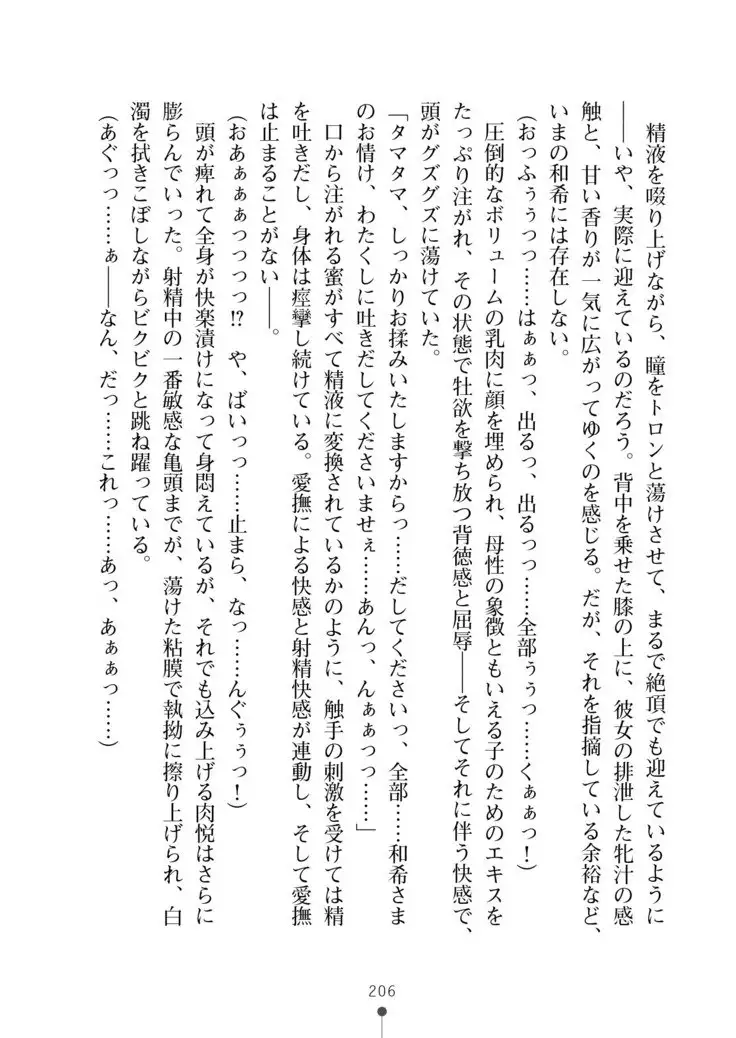 精液を啜り上げながら、瞳をトロンと蕩けさせて、まるで絶頂でも迎えているように
――いや、実際に迎えているのだろう。背中を乗せた膝の上に、彼女の排泄した牝汁の感
触と、甘い香りが一気に広がってゆくのを感じる。だが、それを指摘している余裕など、
いまの和希には存在しない。
（おっふぅぅつっ……はぁぁっ、出るっ、出るっっ……全部ぅぅっ……くぁぁっ！）
　圧倒的なボリュームの乳肉に顔を埋められ、母性の象徴ともいえる子のためのエキスを
たっぷり注がれ、その状態で牡欲を撃ち放つ背徳感と屈辱――そしてそれに伴う快感で、
頭がグズグズに蕩けていた。
「タマタマ、しっかりお揉みいたしますからっ……だしてくださいっ、全部……和希さま
のお情け、わたくしに吐きだしてくださいませぇ……あんっっ、んぁぁっっ……」
　口から注がれる蜜がすべて精液に変換されているかのように、触手の刺激を受けては精
を吐きだし、身体は痙攣し続けている。愛撫による快感と射精快感が連動し、そして愛撫
は止まることがない――。
（おあぁぁぁっっっっ⁉　や、ばいっっ……止まら、なっ……んぐぅぅっ！）
　頭が痺れて全身が快楽漬けになって身悶えているが、それでも込み上げる肉悦はさらに
膨らんでいった。射精中の一番敏感な亀頭までが、蕩けた粘膜で執拗に擦り上げられ、白
濁を拭きこぼしながらビクビクと跳ね躍っている。
（あぐっっ……ぁ――なん、だっ……これっ……あっ、あぁぁっ……）
206